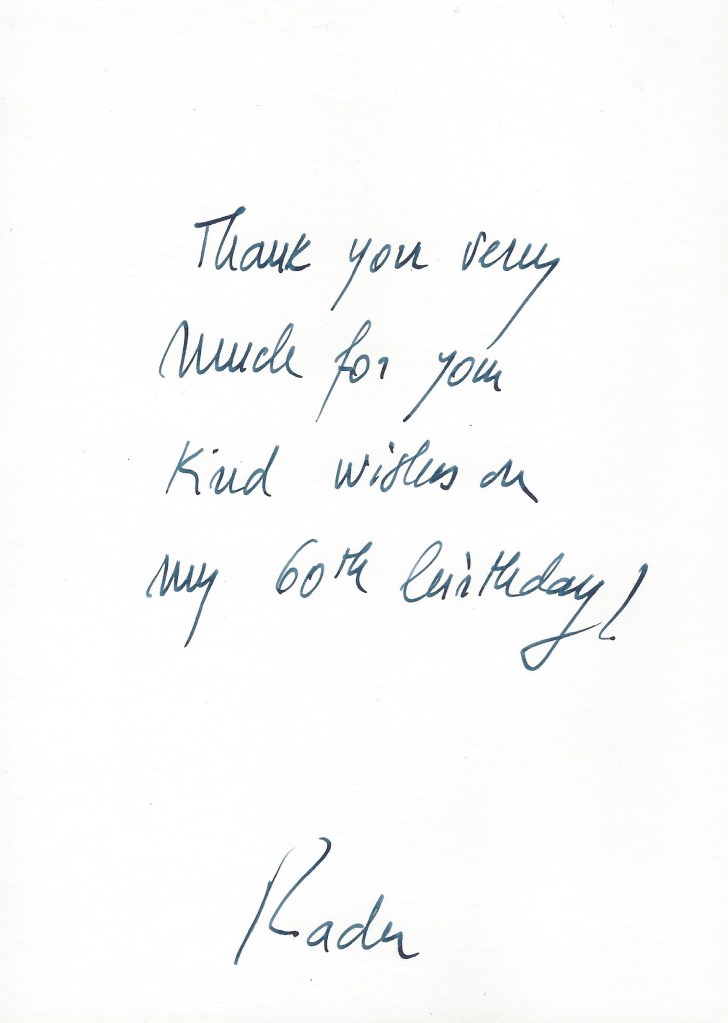 Thank you very
much for your
kind wishes on
my 60th birthday!
Radu